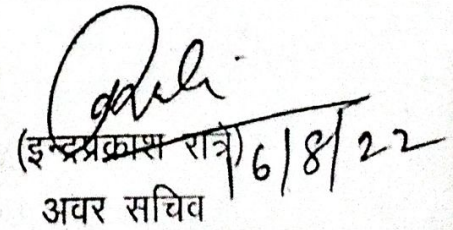 (इन्द्रप्रकाश रात्रे) 16/8/22
अवर सचिव